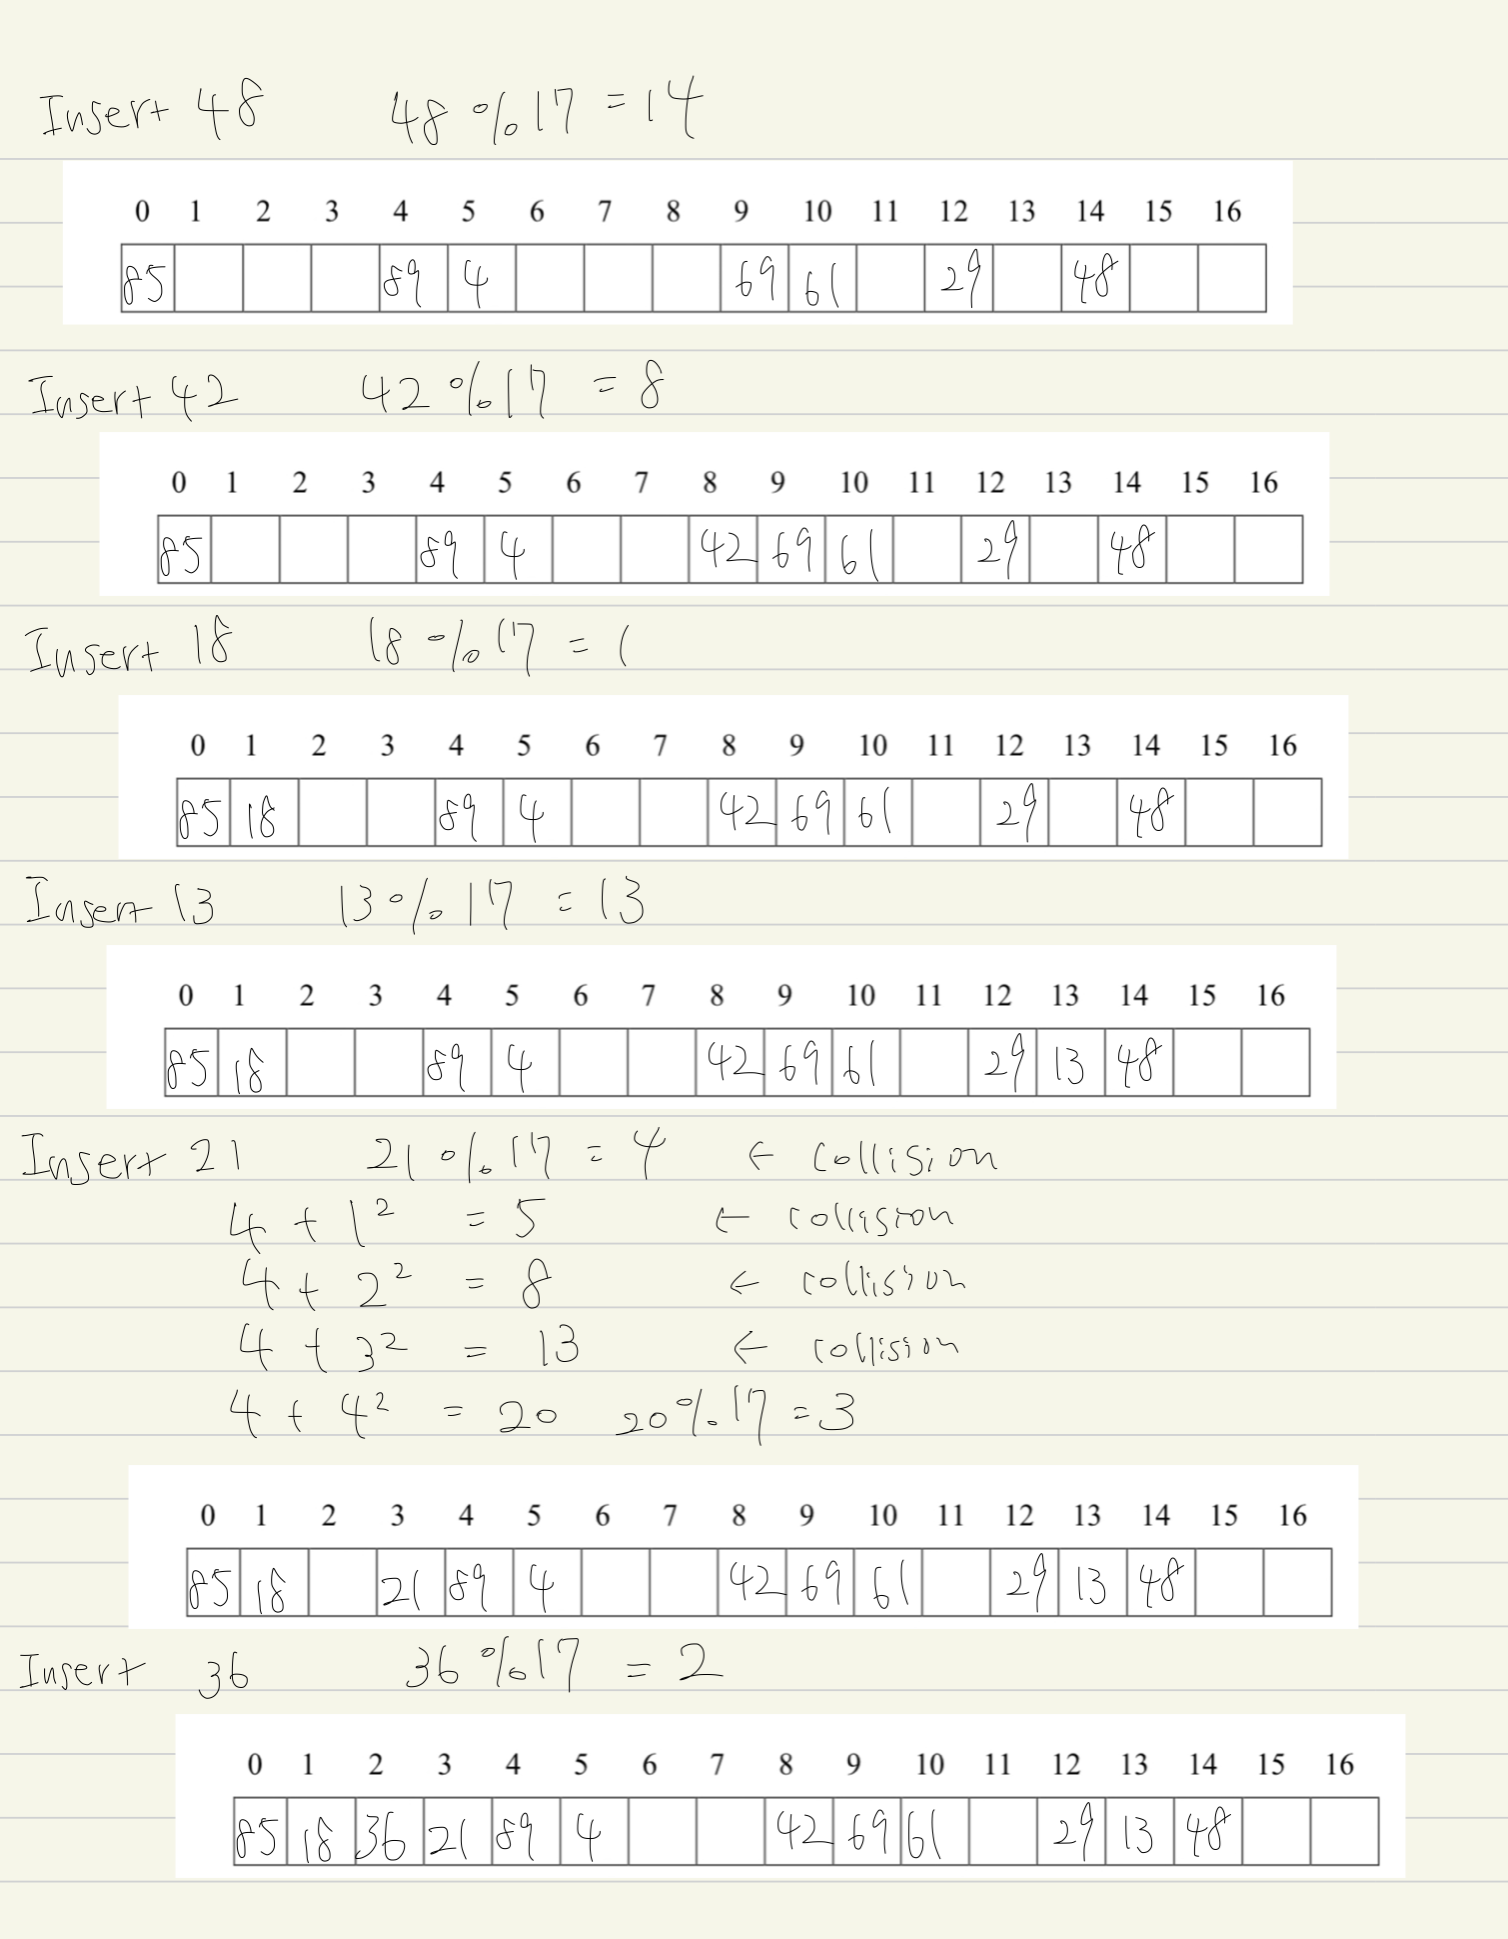 Insert 48 48 % 17 = 14
0 1 2 3 4 5 6 7 8 9 10 11 12 13 14 15 16
85 89 4 69 61 29 48
Insert 42 42 % 17 = 8
0 1 2 3 4 5 6 7 8 9 10 11 12 13 14 15 16
85 89 4 42 69 61 29 48
Insert 18 18 % 17 = 1
0 1 2 3 4 5 6 7 8 9 10 11 12 13 14 15 16
85 18 89 4 42 69 61 29 48
Insert 13 13 % 17 = 13
0 1 2 3 4 5 6 7 8 9 10 11 12 13 14 15 16
85 18 89 4 42 69 61 29 13 48
Insert 21 21 % 17 = 4 ← collision
4 + 1² = 5 ← collision
4 + 2² = 8 ← collision
4 + 3² = 13 ← collision
4 + 4² = 20 20 % 17 = 3
0 1 2 3 4 5 6 7 8 9 10 11 12 13 14 15 16
85 18 21 89 4 42 69 61 29 13 48
Insert 36 36 % 17 = 2
0 1 2 3 4 5 6 7 8 9 10 11 12 13 14 15 16
85 18 36 21 89 4 42 69 61 29 13 48